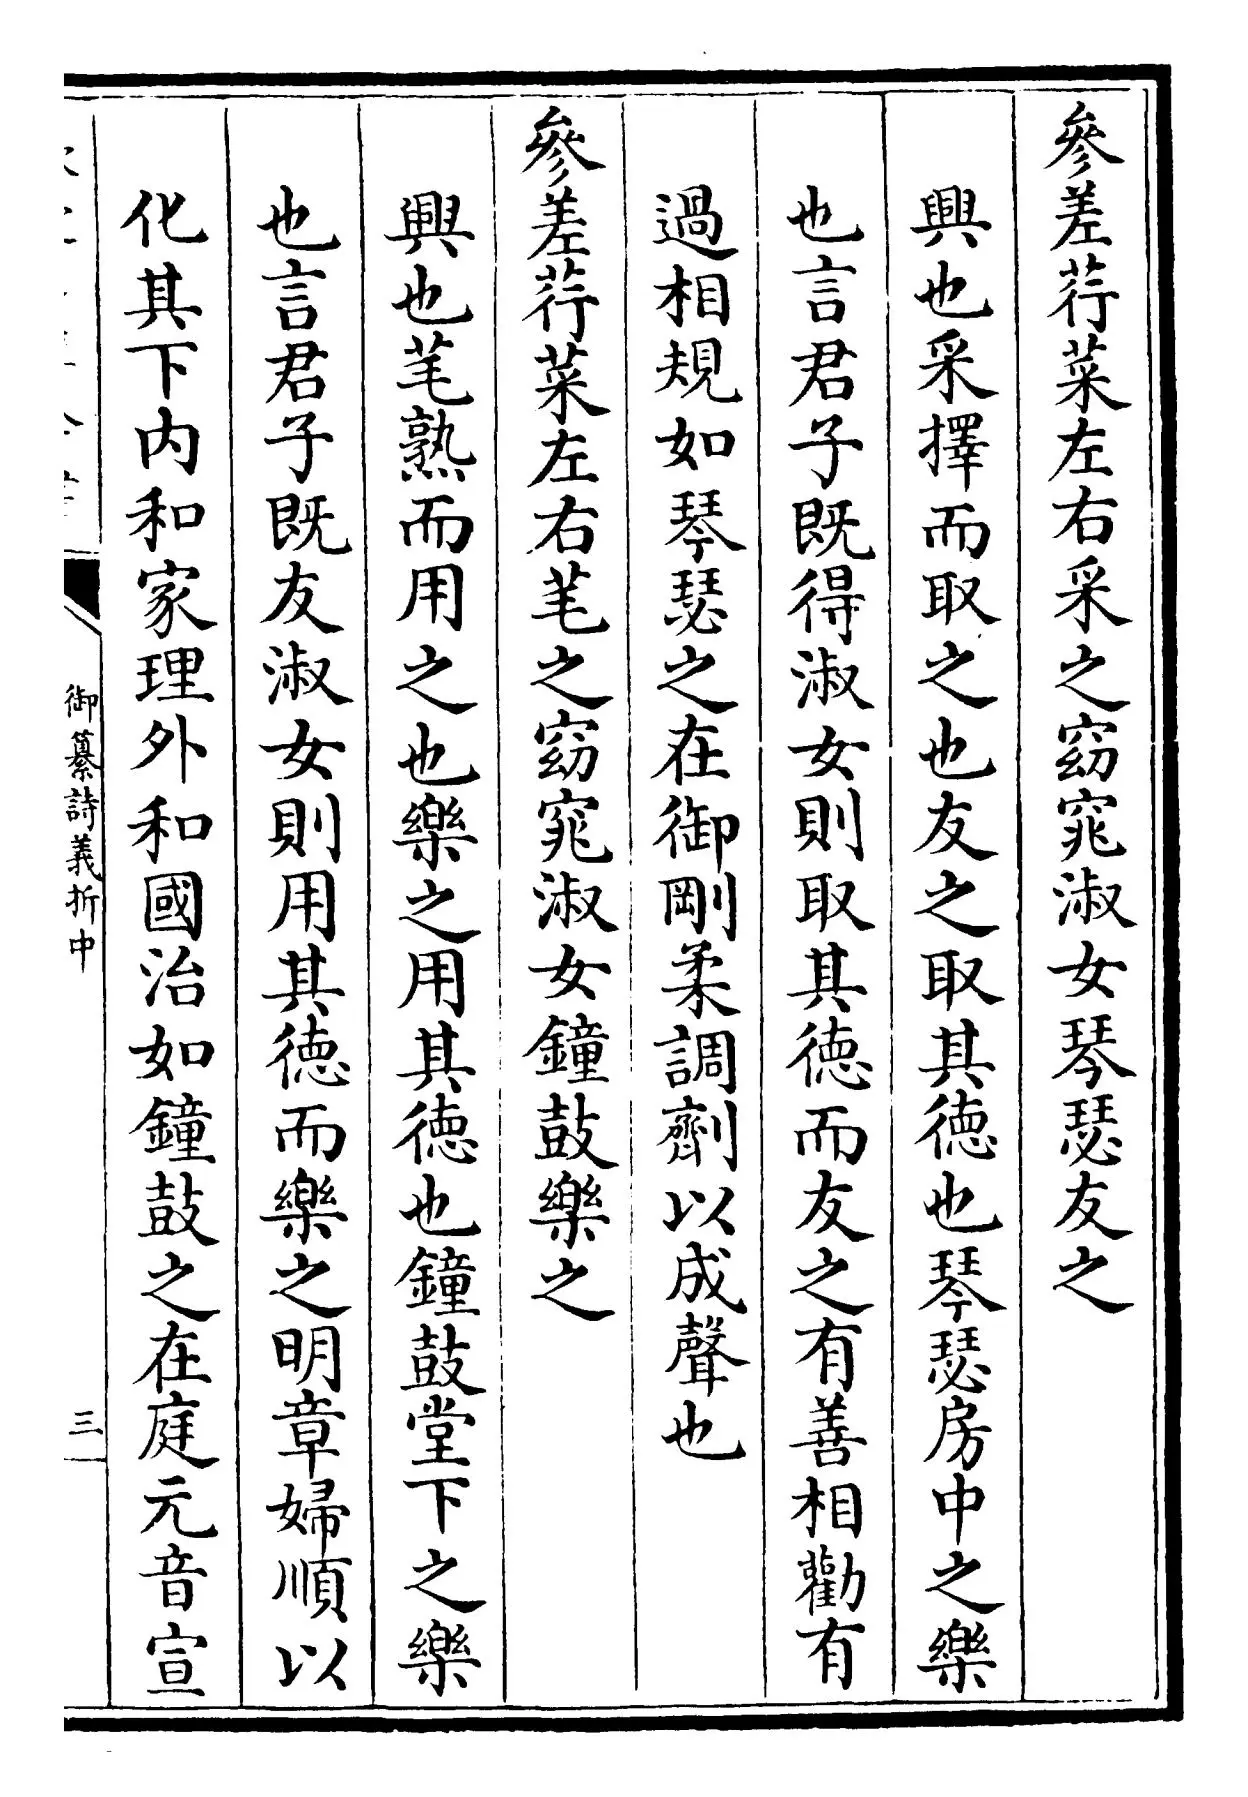 參差荇菜左右采之窈窕淑女琴瑟友之
興也采擇而取之也友之取其德也琴瑟房中之樂
也言君子既得淑女則取其德而友之有善相勸有
過相規如琴瑟之在御剛柔調劑以成聲也
參差荇菜左右芼之窈窕淑女鐘鼓樂之
興也芼熟而用之也樂之用其德也鐘鼓堂下之樂
也言君子既友淑女則用其德而樂之明章婦順以
化其下內和家理外和國治如鐘鼓之在庭元音宣
御纂詩義折中
三